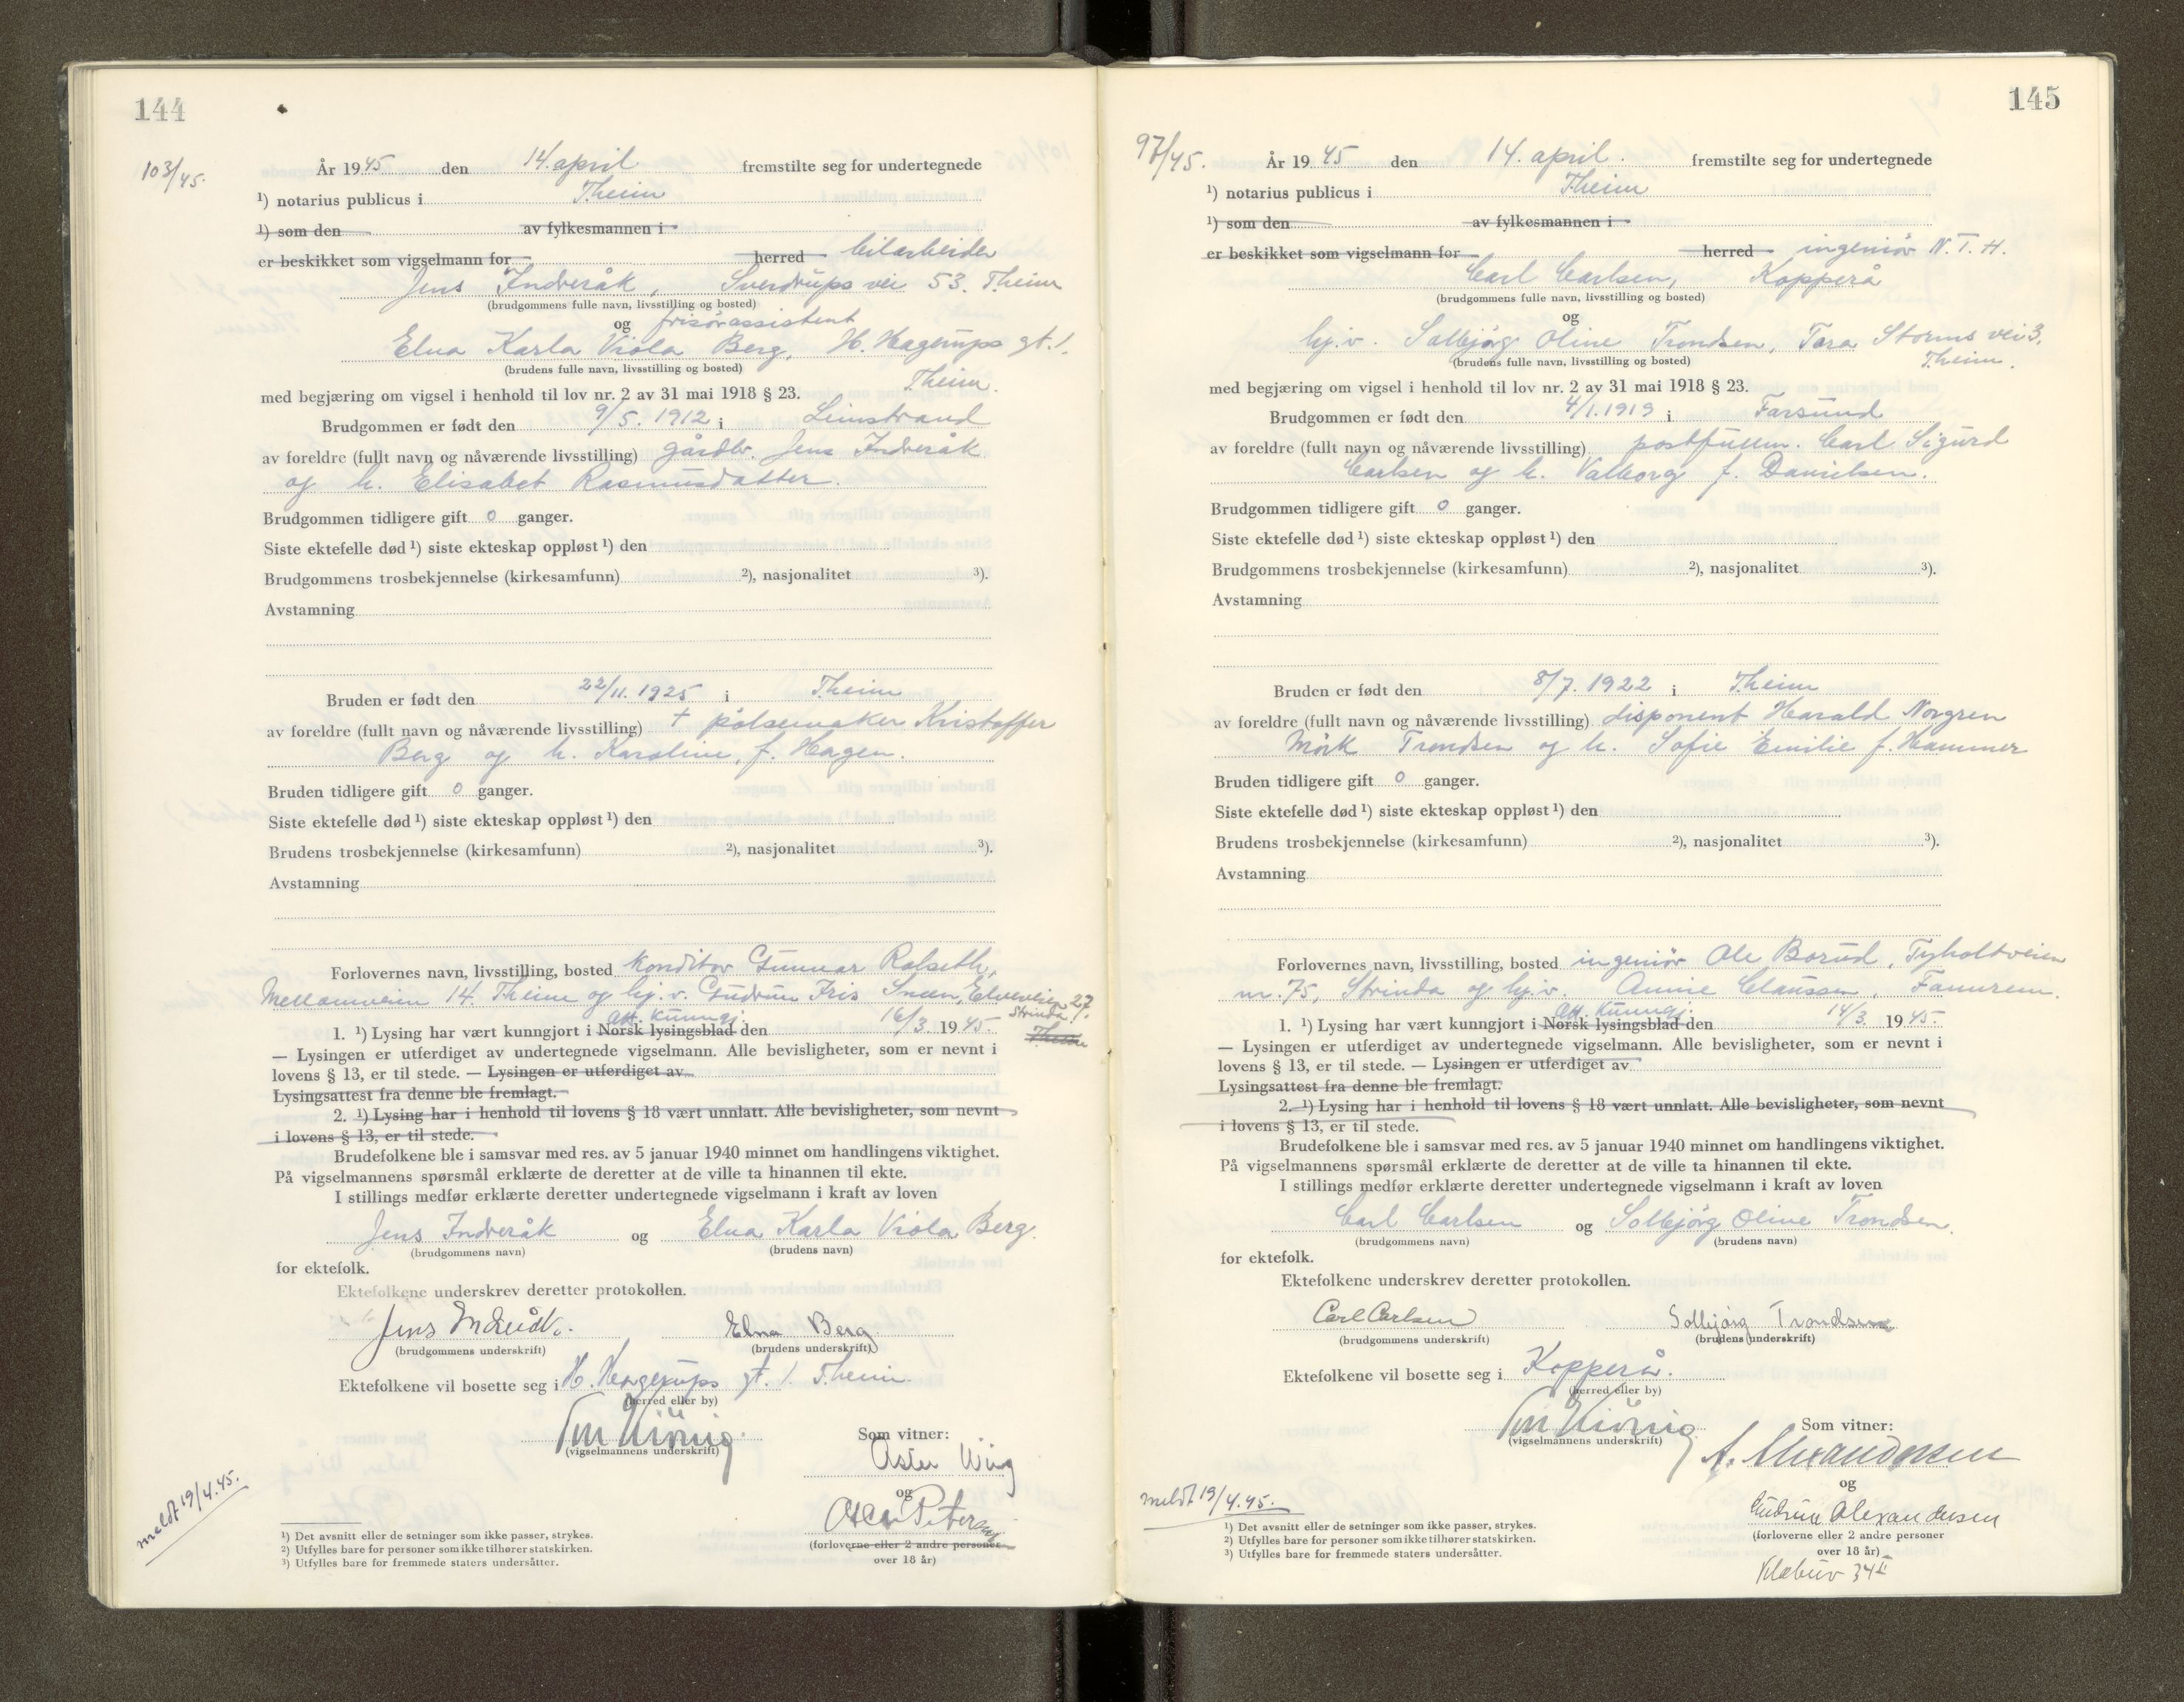 144
103/45.
År 1945 den 14. april fremstilte seg for undertegnede
¹) notarius publicus i Theim
¹) som den av fylkesmannen i
er beskikket som vigselmann for herred bilarbeider
Jens Indreråk, Sverdrups vei 53. Theim
(brudgommens fulle navn, livsstilling og bosted)
og frisørassistent
Elna Karla Viola Berg, H. Hagerups gt. 1.
(brudens fulle navn, livsstilling og bosted)
Theim.
med begjæring om vigsel i henhold til lov nr. 2 av 31 mai 1918 § 23.
Brudgommen er født den 9/5. 1912 i Leinstrand
av foreldre (fullt navn og nåværende livsstilling) gårdbr. Jens Indreråk
og h. Elisabet Rasmusdatter.
Brudgommen tidligere gift 0 ganger.
Siste ektefelle død ¹) siste ekteskap oppløst ¹) den
Brudgommens trosbekjennelse (kirkesamfunn) ²), nasjonalitet ³).
Avstamning
Bruden er født den 22/11. 1925 i Theim
av foreldre (fullt navn og nåværende livsstilling) + pølsemaker Kristoffer
Berg og h. Karoline, f. Hagen.
Bruden tidligere gift 0 ganger.
Siste ektefelle død ¹) siste ekteskap oppløst ¹) den
Brudens trosbekjennelse (kirkesamfunn) ²), nasjonalitet ³).
Avstamning
Forlovernes navn, livsstilling, bosted konditor Gunnar Rolseth,
Mellomveien 14. Theim og hj.v. Gudrun Iris Sneen, Elveveien 27.
Strinda.
att. kunngj.
1. ¹) Lysing har vært kunngjort i Norsk lysingsblad den 16/3. 1945. Theim
— Lysingen er utferdiget av undertegnede vigselmann. Alle bevisligheter, som er nevnt i
lovens § 13, er til stede. — Lysingen er utferdiget av
Lysingsattest fra denne ble fremlagt.
2. ¹) Lysing har i henhold til lovens § 18 vært unnlatt. Alle bevisligheter, som nevnt
i lovens § 13, er til stede.
Brudefolkene ble i samsvar med res. av 5 januar 1940 minnet om handlingens viktighet.
På vigselmannens spørsmål erklærte de deretter at de ville ta hinannen til ekte.
I stillings medfør erklærte deretter undertegnede vigselmann i kraft av loven
Jens Indreråk og Elna Karla Viola Berg.
(brudgommens navn) (brudens navn)
for ektefolk.
Ektefolkene underskrev deretter protokollen.
Jens Elna Berg
(brudgommens underskrift) (brudens underskrift)
Ektefolkene vil bosette seg i H. Hagerups gt. 1. Theim.
(herred eller by)
(vigselmannens underskrift)
Som vitner:
og
(forloverne eller 2 andre personer
over 18 år)
meldt 19/4.45.
¹) Det avsnitt eller de setninger som ikke passer, strykes.
²) Utfylles bare for personer som ikke tilhører statskirken.
³) Utfylles bare for fremmede staters undersåtter.
145
97/45.
År 1945 den 14. april. fremstilte seg for undertegnede
¹) notarius publicus i Theim
¹) som den av fylkesmannen i
er beskikket som vigselmann for herred ingeniør N. T. H.
Carl Carlsen, Kopperå
(brudgommens fulle navn, livsstilling og bosted)
og
hj.v. Solbjørg Oline Trondsen, Tora Storms vei 3.
(brudens fulle navn, livsstilling og bosted)
Theim.
med begjæring om vigsel i henhold til lov nr. 2 av 31 mai 1918 § 23.
Brudgommen er født den 4/1. 1919 i Farsund
av foreldre (fullt navn og nåværende livsstilling) postfullm. Carl Sigurd
Carlsen og h. Valborg f. Danielsen.
Brudgommen tidligere gift 0 ganger.
Siste ektefelle død ¹) siste ekteskap oppløst ¹) den
Brudgommens trosbekjennelse (kirkesamfunn) ²), nasjonalitet ³).
Avstamning
Bruden er født den 8/7. 1922 i Theim
av foreldre (fullt navn og nåværende livsstilling) disponent Harald Norgren
Mørk Trondsen og h. Sofie Emilie f. Hammer
Bruden tidligere gift 0 ganger.
Siste ektefelle død ¹) siste ekteskap oppløst ¹) den
Brudens trosbekjennelse (kirkesamfunn) ²), nasjonalitet ³).
Avstamning
Forlovernes navn, livsstilling, bosted ingeniør Ole Borud, Tyholtveien
nr. 75, Strinda og hj.v. Annie Claussen, Fannrem.
att. kunngj.
1. ¹) Lysing har vært kunngjort i Norsk lysingsblad den 14/3. 1945.
— Lysingen er utferdiget av undertegnede vigselmann. Alle bevisligheter, som er nevnt i
lovens § 13, er til stede. — Lysingen er utferdiget av
Lysingsattest fra denne ble fremlagt.
2. ¹) Lysing har i henhold til lovens § 18 vært unnlatt. Alle bevisligheter, som nevnt
i lovens § 13, er til stede.
Brudefolkene ble i samsvar med res. av 5 januar 1940 minnet om handlingens viktighet.
På vigselmannens spørsmål erklærte de deretter at de ville ta hinannen til ekte.
I stillings medfør erklærte deretter undertegnede vigselmann i kraft av loven
Carl Carlsen og Solbjørg Oline Trondsen.
(brudgommens navn) (brudens navn)
for ektefolk.
Ektefolkene underskrev deretter protokollen.
Carl Carlsen Solbjørg Trondsen
(brudgommens underskrift) (brudens underskrift)
Ektefolkene vil bosette seg i Kopperå.
(herred eller by)
(vigselmannens underskrift)
Som vitner:
A. Alexandersen
og
Gudrun Alexandersen
(forloverne eller 2 andre personer
over 18 år)
Klæbuv 34 II
meldt 19/4.45.
¹) Det avsnitt eller de setninger som ikke passer, strykes.
²) Utfylles bare for personer som ikke tilhører statskirken.
³) Utfylles bare for fremmede staters undersåtter.